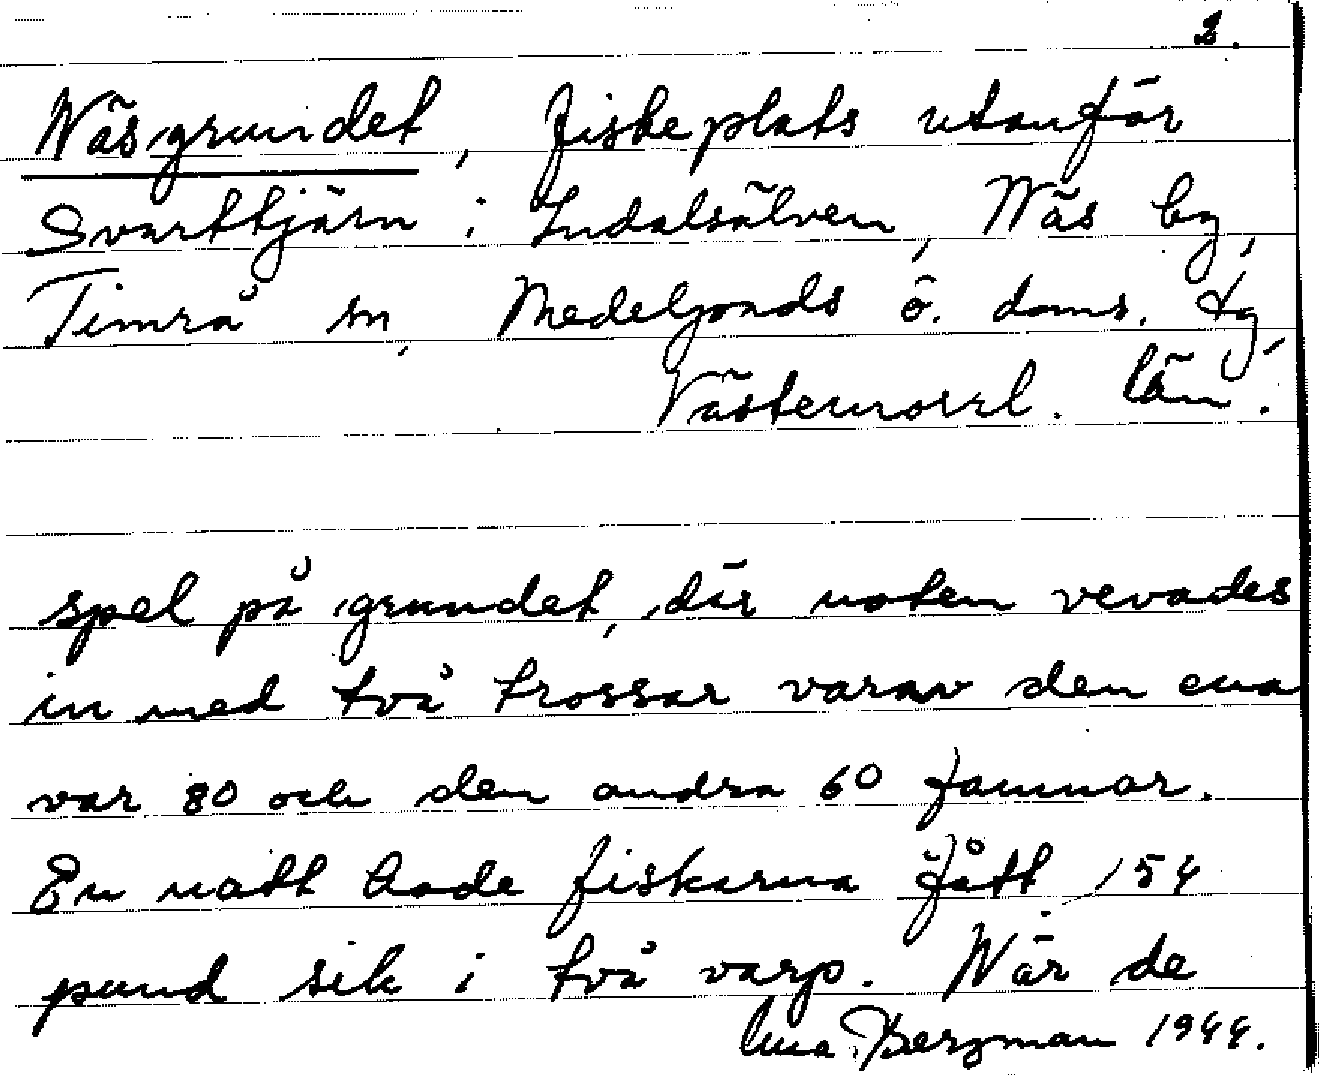 2.
Näsgrundet, fiskeplats utanför
Svarttjärn i Indalsälven, Näs by,
Timrå sn, Medelpads ö. doms. tg,
Västernorrl. län.
spel på grundet, där noten vevades
in med två trossar varav den ena
var 80 och den andra 60 famnar.
En natt hade fiskarna fått 154
pund sik i två varp. När de
Bergman 1944.